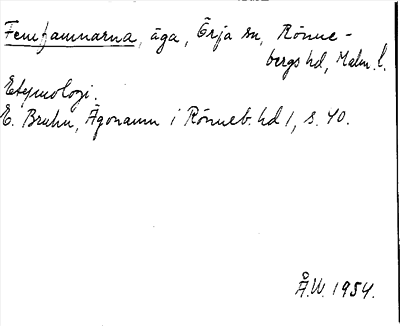 Femfamnarna, äga, Örja sn, Rönne-
bergs hd, Malm. l.
Etymologi.
E. Bruhn, Ägonamn i Rönneb. hd 1, s. 40.
Å.W. 1954.